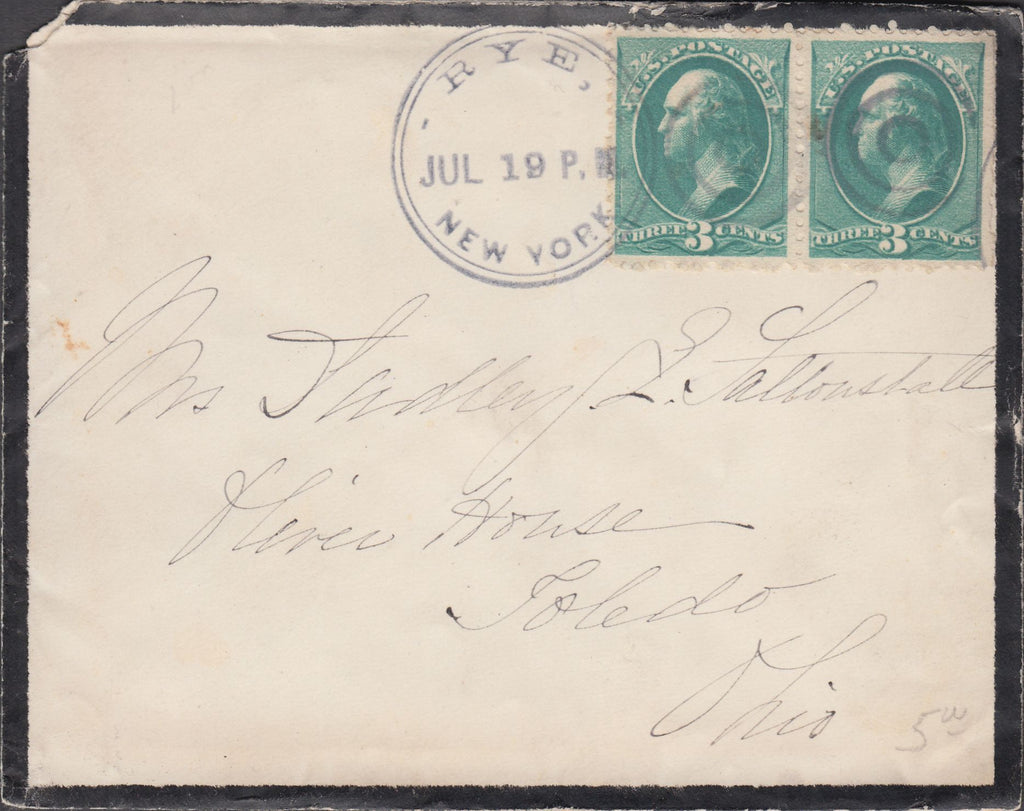 RYE,
JUL 19 P.M.
NEW YORK
U.S. POSTAGE
THREE 3 CENTS
U.S. POSTAGE
THREE 3 CENTS
Mrs Dudley E. Saltonstall
Oliver House
Toledo
Ohio